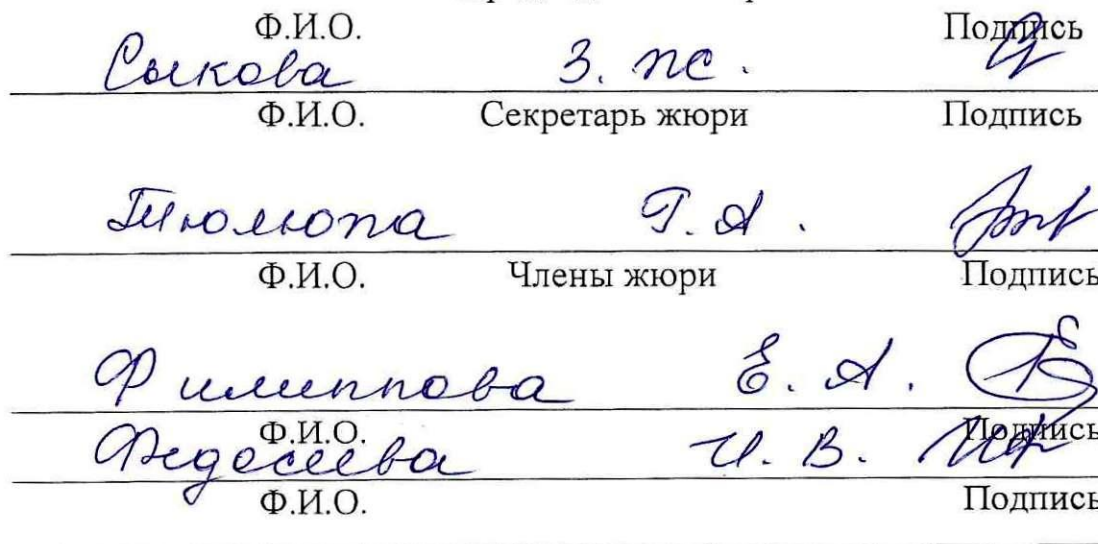 Ф.И.О. Подпись
Сыкова З. Ж.
Ф.И.О. Секретарь жюри Подпись
Тюлюпа Г. А.
Ф.И.О. Члены жюри Подпись
Филиппова Е. А.
Ф.И.О. Подпись
Федосеева И. В.
Ф.И.О. Подпись